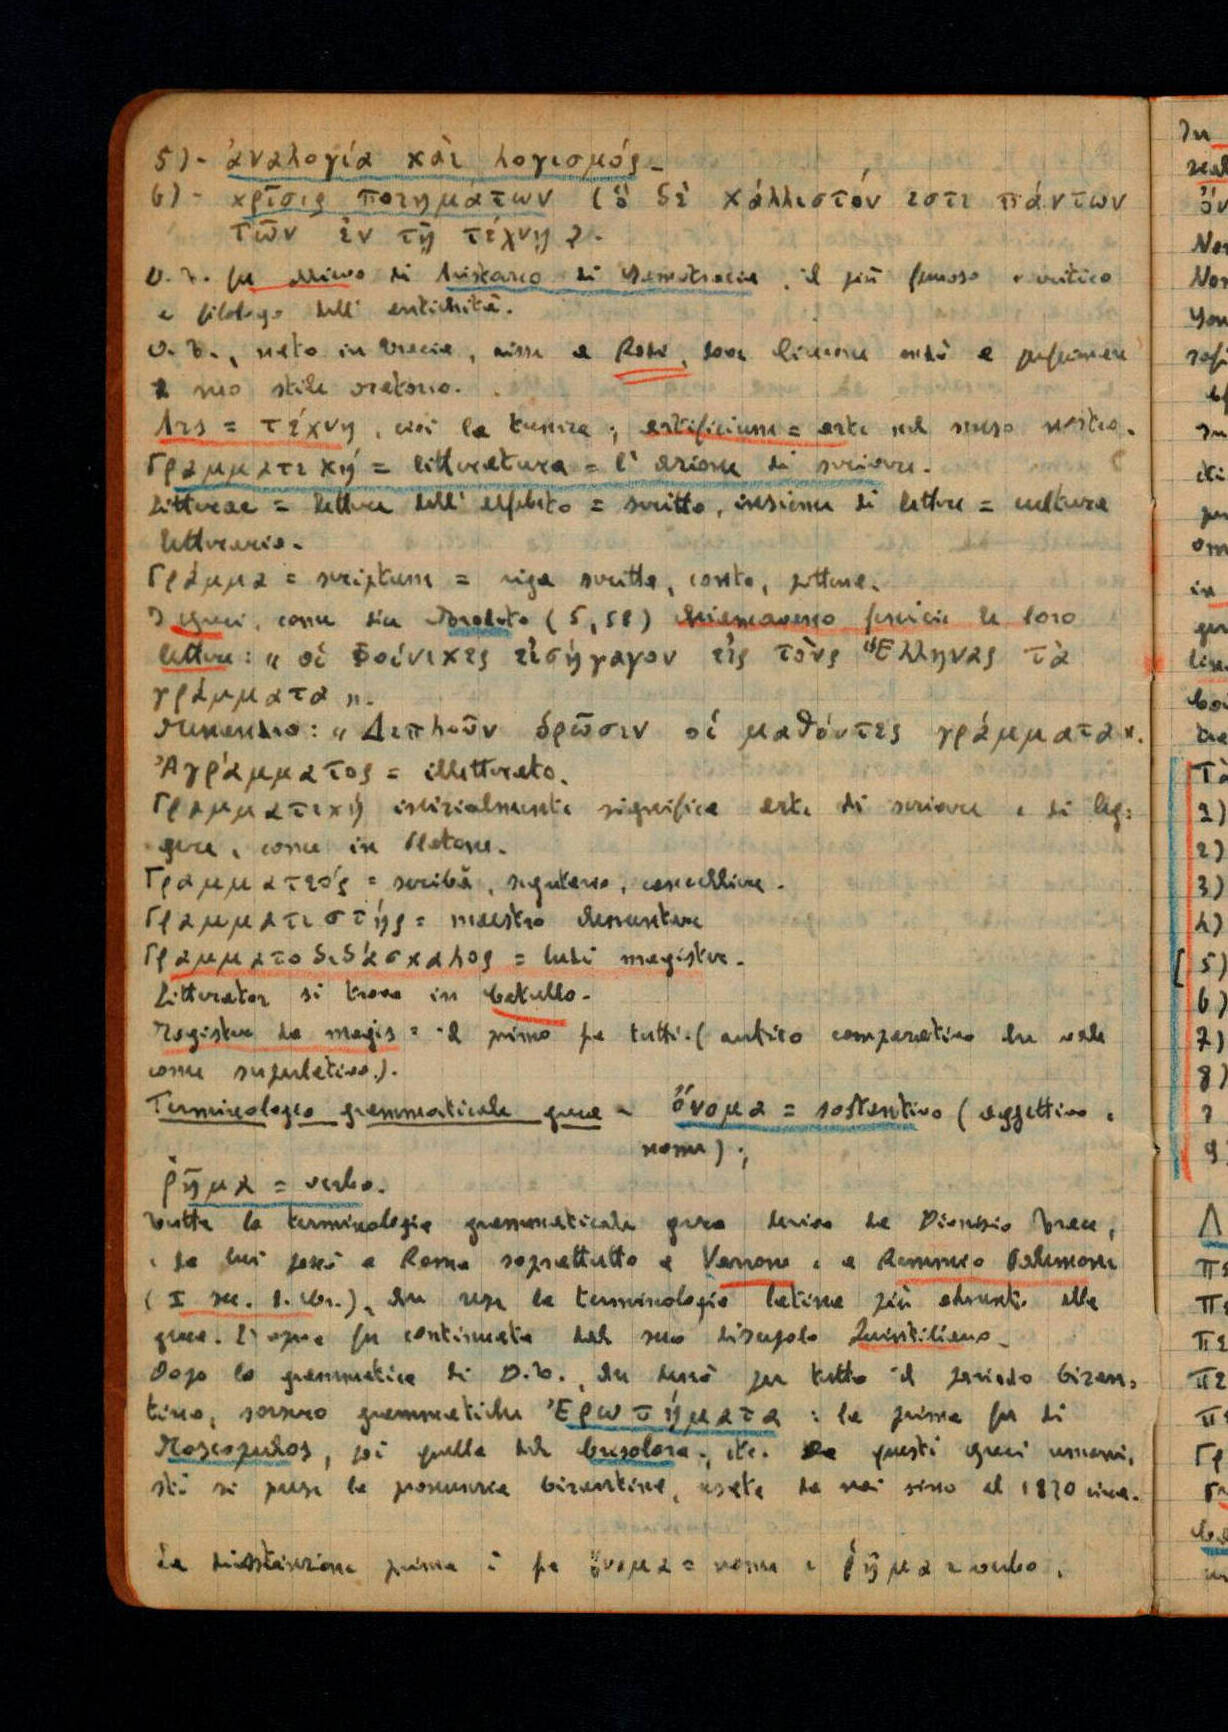 5)- ἀναλογία καὶ λογισμός -
6)- κρῖσις ποιημάτων (ὃ δὲ κάλλιστόν εστι πάντων
τῶν ἐν τῇ τέχνῃ).
D. T. fu allievo di Aristarco di Samotracia, il più famoso critico
e filologo dell' antichità.
D. T., nato in Tracia, visse a Rodi, dove Cicerone andò a perfezionare
il suo stile oratorio.
Ars = τέχνη, cioè la tecnica; artificium = arte nel senso nostro.
Γραμματική = litteratura = l' azione di scrivere.
Litterae = lettere dell' alfabeto = scritto, insieme di lettere = cultura
letteraria.
Γράμμα = scriptum = riga scritta, conto, pittura.
I greci, come dice Erodoto (5,58) chiamavano fenicie le loro
lettere: " οἱ Φοίνικες εἰσήγαγον εἰς τοὺς Ἕλληνας τὰ
γράμματα ".
Menandro: " Διπλοῦν ὁρῶσιν οἱ μαθόντες γράμματα ".
Ἀγράμματος = illetterato.
Γραμματική inizialmente significa arte di scrivere e di leg=
gere, come in Platone.
Γραμματεύς = scriba, segretario, cancelliere.
Γραμματιστής = maestro elementare
Γραμματοδιδάσκαλος = ludi magister.
Litterator si trova in Catullo.
Magister da magis = il primo fra tutti. (antico comparativo che vale
come superlativo.).
Terminologia grammaticale greca - ὄνομα = sostantivo (aggettivo e
nome);
ῥῆμα = verbo.
Tutta la terminologia grammaticale greca deriva da Dionisio Trace,
e da lui passò a Roma soprattutto a Varrone e a Remmio Palemone
(I sec. d. Cr.), che rese la terminologia latina più aderente alla
greca. L' opera fu continuata dal suo discepolo Quintiliano.
Dopo la grammatica di D. T., che durò per tutto il periodo bizan=
tino, sorsero grammatiche Ἐρωτήματα : la prima fu di
Moscopulos, poi quella del Crisolora, etc. Da questi greci umani=
sti si prese la pronuncia bizantina, usata da noi sino al 1870 circa.
La distinzione prima è fra ὄνομα = nome e ῥῆμα = verbo.